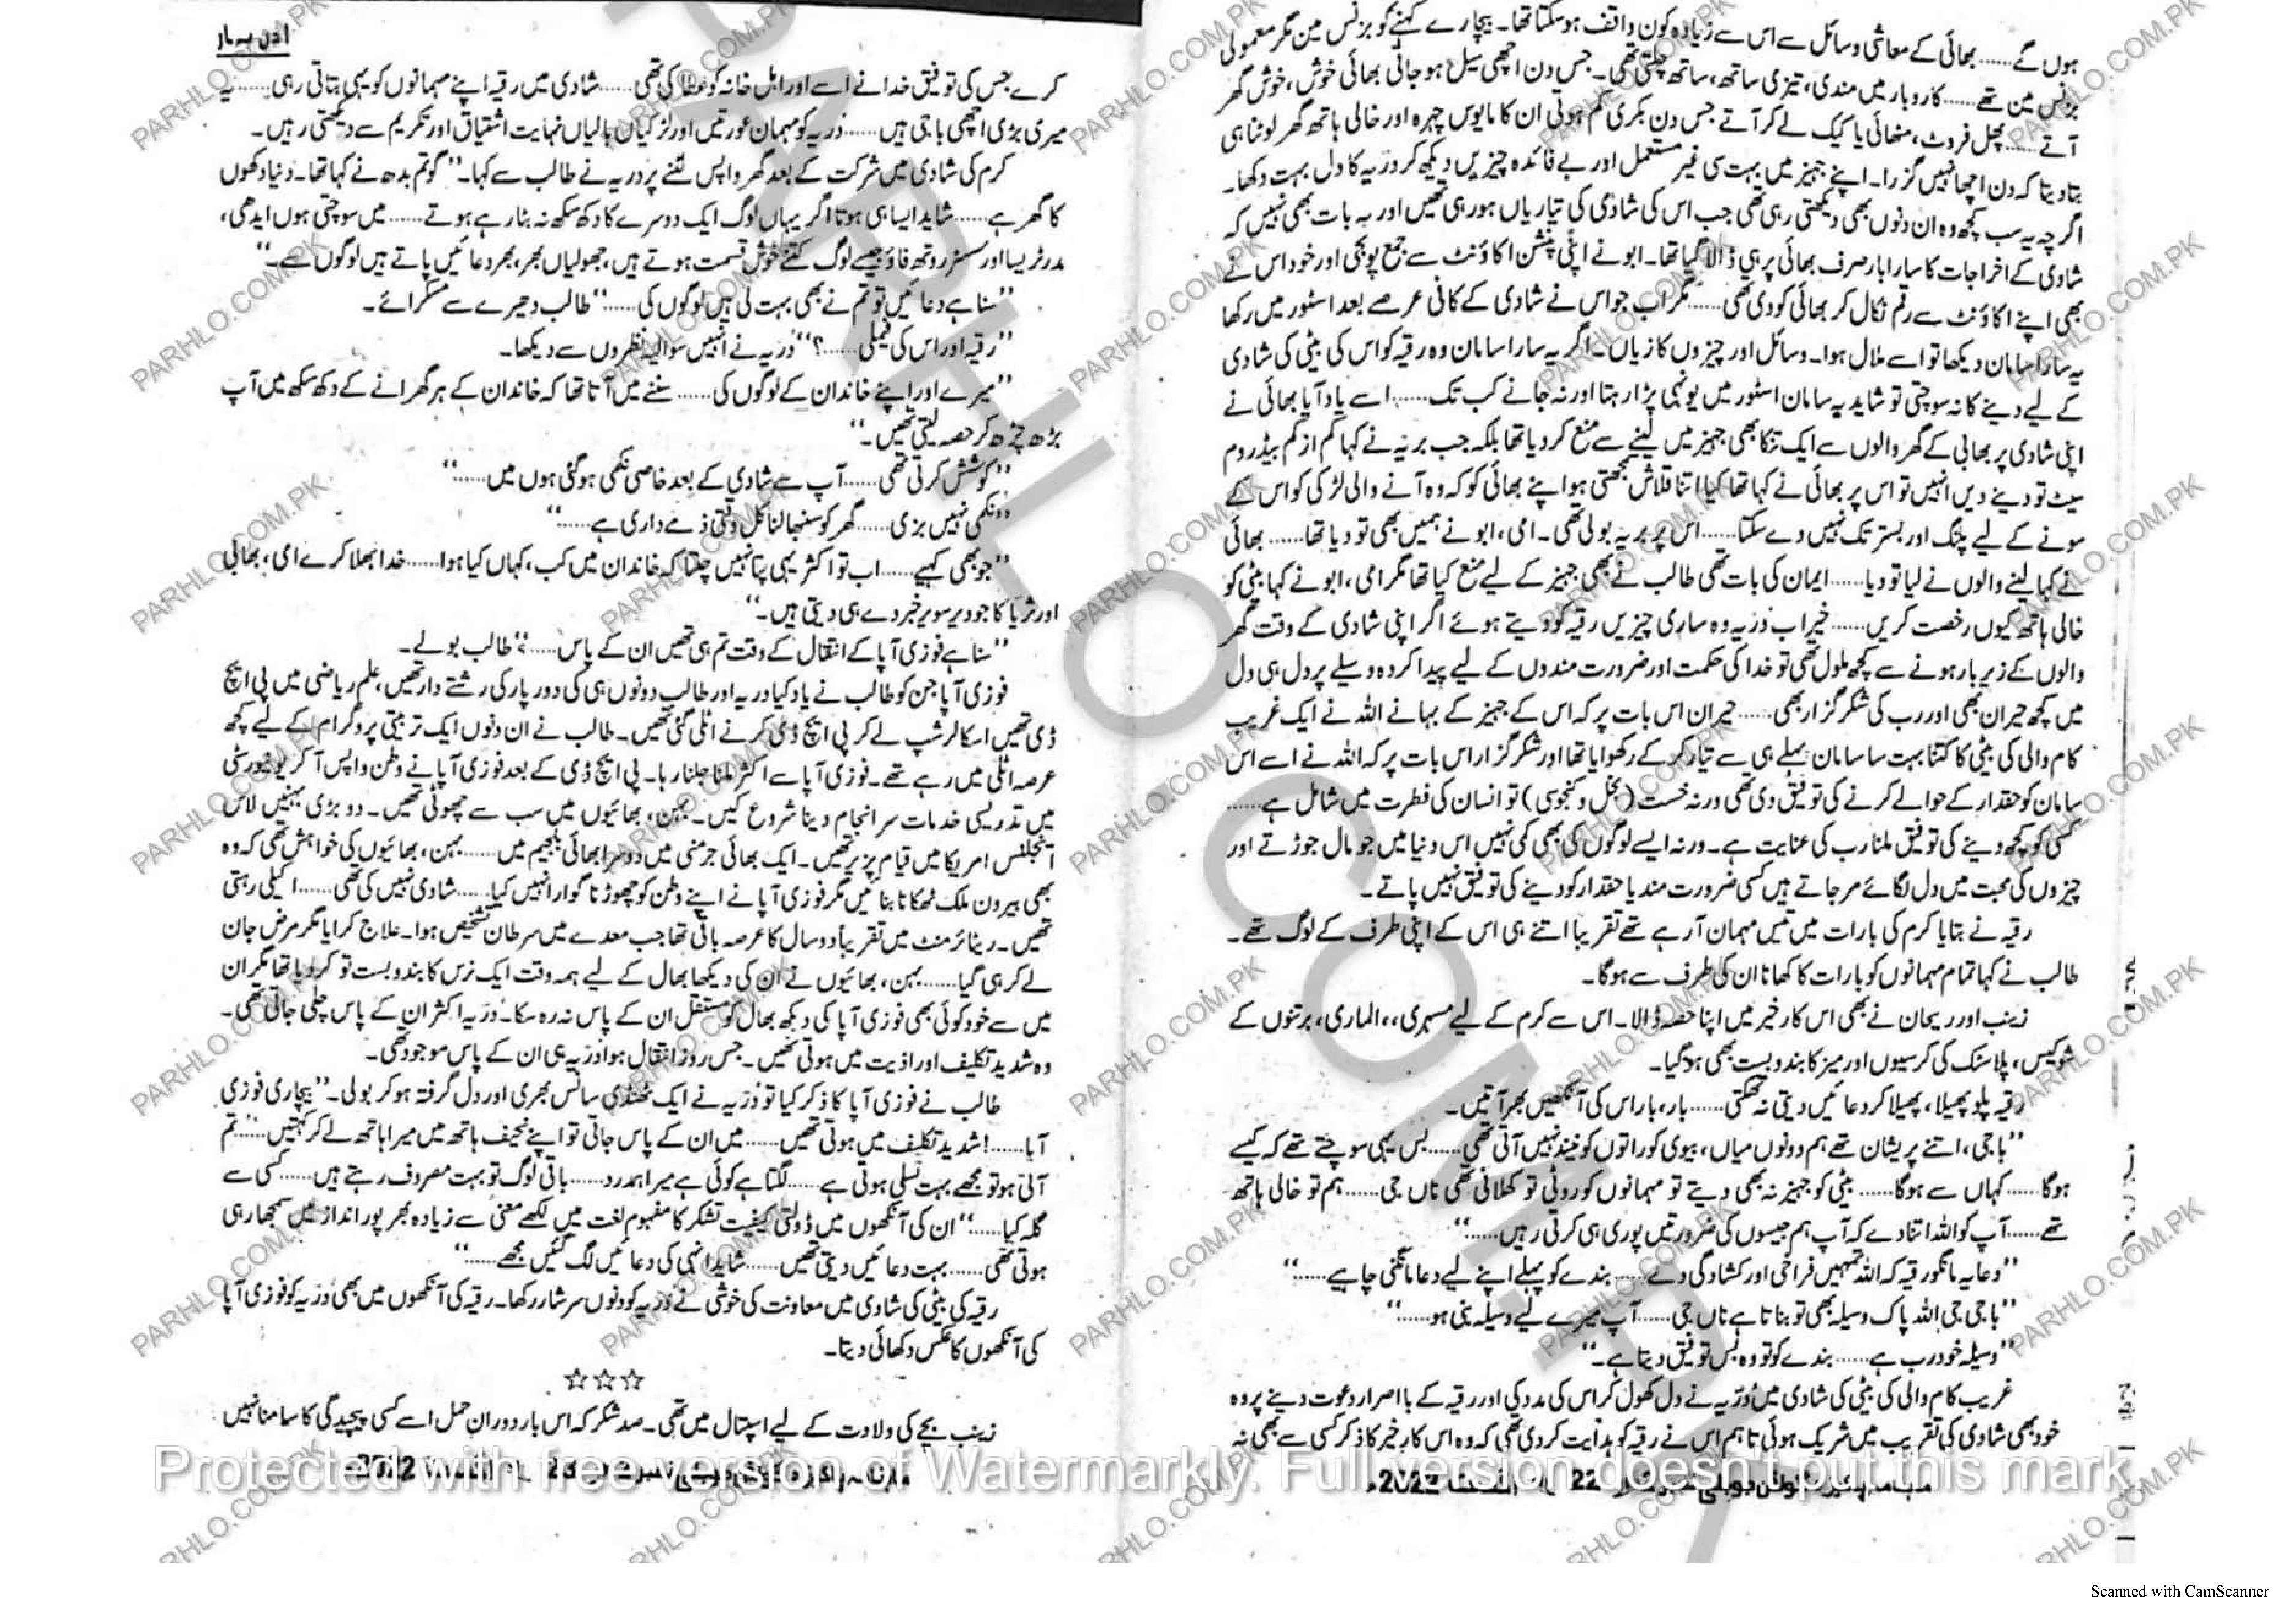 ہوں گے...... بھائی کے معاشی وسائل سے اس سے زیادہ کون واقف ہوسکتا تھا۔ بیچارے کہنے کو بزنس مین مگر معمولی
بزنس مین تھے...... کاروبار میں مندی، تیزی ساتھ، ساتھ چلتی تھی۔ جس دن اچھی سیل ہوجاتی بھائی خوش، خوش گھر
آتے...... پھل فروٹ، مٹھائی یا کیک لے کر آتے جس دن بکری کم ہوتی ان کا مایوس چہرہ اور خالی ہاتھ گھر لوٹنا ہی
بتا دیتا کہ دن اچھا نہیں گزرا۔ اپنے جہیز میں بہت سی غیر مستعمل اور بے فائدہ چیزیں دیکھ کر درّیہ کا دل بہت دکھا۔
اگرچہ یہ سب کچھ وہ ان دنوں بھی دیکھتی رہی تھی جب اس کی شادی کی تیاریاں ہورہی تھیں اور یہ بات بھی نہیں کہ
شادی کے اخراجات کا سارا بار صرف بھائی پر ہی ڈالا گیا تھا۔ ابو نے اپنی پنشن اکاؤنٹ سے جمع پونجی اور خود اس نے
بھی اپنے اکاؤنٹ سے رقم نکال کر بھائی کو دی تھی...... مگر اب جو اس نے شادی کے کافی عرصے بعد اسٹور میں رکھا
یہ سارا سامان دیکھا تو اسے ملال ہوا۔ وسائل اور چیزوں کا زیاں۔ اگر یہ سارا سامان وہ رقیہ کو اس کی بیٹی کی شادی
کے لیے دینے کا نہ سوچتی تو شاید یہ سامان اسٹور میں یونہی پڑا رہتا اور نہ جانے کب تک...... اسے یاد آیا بھائی نے
اپنی شادی پر بھابی کے گھر والوں سے ایک تنکا بھی جہیز میں لینے سے منع کردیا تھا بلکہ جب بریہ نے کہا کم از کم بیڈ روم
سیٹ تو دینے دیں انہیں تو اس پر بھائی نے کہا تھا کیا اتنا قلاش سمجھتی ہو اپنے بھائی کو کہ وہ آنے والی لڑکی کو اس کے
سونے کے لیے پلنگ اور بستر تک نہیں دے سکتا...... اس پر بریہ بولی تھی۔ امی، ابو نے ہمیں بھی تو دیا تھا...... بھائی
نے کہا لینے والوں نے لیا تو دیا...... ایمان کی بات تھی طالب نے بھی جہیز کے لیے منع کیا تھا مگر امی، ابو نے کہا بیٹی کو
خالی ہاتھ کیوں رخصت کریں...... خیر اب درّیہ وہ ساری چیزیں رقیہ کو دیتے ہوئے اگر اپنی شادی کے وقت گھر
والوں کے زیر بار ہونے سے کچھ ملول تھی تو خدا کی حکمت اور ضرورت مندوں کے لیے پیدا کردہ وسیلے پر دل ہی دل
میں کچھ حیران بھی اور رب کی شکر گزار بھی...... حیران اس بات پر کہ اس کے جہیز کے بہانے اللہ نے ایک غریب
کام والی کی بیٹی کا کتنا بہت سا سامان پہلے ہی سے تیار کر کے رکھوایا تھا اور شکر گزار اس بات پر کہ اللہ نے اسے اس
سامان کو حقدار کے حوالے کرنے کی توفیق دی تھی ورنہ خست (بخل و کنجوسی) تو انسان کی فطرت میں شامل ہے......
کسی کو کچھ دینے کی توفیق ملنا رب کی عنایت ہے۔ ورنہ ایسے لوگوں کی بھی کمی نہیں اس دنیا میں جو مال جوڑتے اور
چیزوں کی محبت میں دل لگائے مر جاتے ہیں کسی ضرورت مند یا حقدار کو دینے کی توفیق نہیں پاتے۔
رقیہ نے بتایا کرم کی بارات میں تیس مہمان آرہے تھے تقریباً اتنے ہی اس کے اپنی طرف کے لوگ تھے۔
طالب نے کہا تمام مہمانوں کو بارات کا کھانا ان کی طرف سے ہوگا۔
زینب اور ریحان نے بھی اس کارِ خیر میں اپنا حصہ ڈالا۔ اس سے کرم کے لیے مسہری،، الماری، برتنوں کے
شوکیس، پلاسٹک کی کرسیوں اور میز کا بندوبست بھی ہوگیا۔
رقیہ پلو پھیلا، پھیلا کر دعائیں دیتی نہ تھکتی...... بار، بار اس کی آنکھیں بھر آتیں۔
’’باجی، اتنے پریشان تھے ہم دونوں میاں، بیوی کو راتوں کو نیند نہیں آتی تھی...... بس یہی سوچتے تھے کہ کیسے
ہوگا...... کہاں سے ہوگا...... بیٹی کو جہیز نہ بھی دیتے تو مہمانوں کو روٹی تو کھلانی تھی ناں جی...... ہم تو خالی ہاتھ
تھے...... آپ کو اللہ اتنا دے کہ آپ ہم جیسوں کی ضرورتیں پوری ہی کرتی رہیں......‘‘
’’دعا یہ مانگو رقیہ کہ اللہ تمہیں فراخی اور کشادگی دے...... بندے کو پہلے اپنے لیے دعا مانگنی چاہیے......‘‘
’’باجی جی اللہ پاک وسیلہ بھی تو بناتا ہے ناں جی...... آپ میرے لیے وسیلہ بنی ہو......‘‘
’’وسیلہ خود رب ہے...... بندے کو تو وہ بس توفیق دیتا ہے۔‘‘
غریب کام والی کی بیٹی کی شادی میں درّیہ نے دل کھول کر اس کی مدد کی اور رقیہ کے بااصرار دعوت دینے پر وہ
خود بھی شادی کی تقریب میں شریک ہوئی تاہم اس نے رقیہ کو ہدایت کردی تھی کہ وہ اس کارِ خیر کا ذکر کسی سے بھی نہ
22 اگست 2022ء
اذن بہار
کرے جس کی توفیق خدا نے اسے اور اہل خانہ کو عطا کی تھی...... شادی میں رقیہ اپنے مہمانوں کو یہی بتاتی رہی...... یہ
میری بڑی اچھی باجی ہیں...... درّیہ کو مہمان عورتیں اور لڑکیاں بالیاں نہایت اشتیاق اور تکریم سے دیکھتی رہیں۔
کرم کی شادی میں شرکت کے بعد گھر واپس لٹنے پر درّیہ نے طالب سے کہا۔ ’’گوتم بدھ نے کہا تھا۔ دنیا دکھوں
کا گھر ہے...... شاید ایسا ہی ہوتا اگر یہاں لوگ ایک دوسرے کا دکھ سکھ نہ بٹا رہے ہوتے...... میں سوچتی ہوں ایدھی،
مدر ٹریسا اور سسٹر روتھ فاؤ جیسے لوگ کتنے خوش قسمت ہوتے ہیں، جھولیاں بھر، بھر دعائیں پاتے ہیں لوگوں سے۔‘‘
’’سنا ہے دعائیں تو تم نے بھی بہت لی ہیں لوگوں کی......‘‘ طالب دھیرے سے مسکرائے۔
’’رقیہ اور اس کی فیملی......؟‘‘ درّیہ نے انہیں سوالیہ نظروں سے دیکھا۔
’’میرے اور اپنے خاندان کے لوگوں کی...... سننے میں آتا تھا کہ خاندان کے ہر گھرانے کے دکھ سکھ میں آپ
بڑھ چڑھ کر حصہ لیتی تھیں۔‘‘
’’کوشش کرتی تھی...... آپ سے شادی کے بعد خاصی نکمی ہوگئی ہوں میں......‘‘
’’نکمی نہیں بزی...... گھر کو سنبھالنا کل وقتی ذمے داری ہے......‘‘
’’جو بھی کہیے...... اب تو اکثر یہی پتا نہیں چلتا کہ خاندان میں کب، کہاں کیا ہوا...... خدا بھلا کرے امی، بھابی
اور ثریا کا جو دیر سویر خبر دے ہی دیتی ہیں۔‘‘
’’سنا ہے فوزی آپا کے انتقال کے وقت تم ہی تھیں ان کے پاس......؟‘‘ طالب بولے۔
فوزی آپا جن کو طالب نے یاد کیا درّیہ اور طالب دونوں ہی کی دور پار کی رشتے دار تھیں، علم ریاضی میں پی ایچ
ڈی تھیں اسکالر شپ لے کر پی ایچ ڈی کرنے اٹلی گئی تھیں۔ طالب نے ان دنوں ایک تربیتی پروگرام کے لیے کچھ
عرصہ اٹلی میں رہے تھے۔ فوزی آپا سے اکثر ملنا جلنا رہا۔ پی ایچ ڈی کے بعد فوزی آپا نے وطن واپس آکر یونیورسٹی
میں تدریسی خدمات سرانجام دینا شروع کیں۔ بہن، بھائیوں میں سب سے چھوٹی تھیں۔ دو بڑی بہنیں لاس
اینجلس امریکا میں قیام پزیر تھیں۔ ایک بھائی جرمنی میں دوسرا بھائی بلجیم میں...... بہن، بھائیوں کی خواہش تھی کہ وہ
بھی بیرون ملک ٹھکانا بنائیں مگر فوزی آپا نے اپنے وطن کو چھوڑنا گوارا نہیں کیا...... شادی نہیں کی تھی...... اکیلی رہتی
تھیں۔ ریٹائرمنٹ میں تقریباً دو سال کا عرصہ باقی تھا جب معدے میں سرطان تشخیص ہوا۔ علاج کرایا مگر مرض جان
لے کر ہی گیا...... بہن، بھائیوں نے ان کی دیکھا بھال کے لیے ہمہ وقت ایک نرس کا بندوبست تو کردیا تھا مگر ان
میں سے خود کوئی بھی فوزی آپا کی دیکھ بھال کو مستقل ان کے پاس نہ رہ سکا۔ درّیہ اکثر ان کے پاس چلی جاتی تھی۔
وہ شدید تکلیف اور اذیت میں ہوتی تھیں۔ جس روز انتقال ہوا درّیہ ہی ان کے پاس موجود تھی۔
طالب نے فوزی آپا کا ذکر کیا تو درّیہ نے ایک ٹھنڈی سانس بھری اور دل گرفتہ ہوکر بولی۔ ’’بیچاری فوزی
آپا......! شدید تکلیف میں ہوتی تھیں...... میں ان کے پاس جاتی تو اپنے نحیف ہاتھ میں میرا ہاتھ لے کر کہتیں...... تم
آتی ہو تو مجھے بہت تسلی ہوتی ہے...... لگتا ہے کوئی ہے میرا ہمدرد...... باقی لوگ تو بہت مصروف رہتے ہیں...... کسی سے
گلہ کیا......‘‘ ان کی آنکھوں میں ڈولتی کیفیت تشکر کا مفہوم لغت میں لکھے معنی سے زیادہ بھرپور انداز میں سمجھا رہی
ہوتی تھی...... بہت دعائیں دیتی تھیں...... شاید انہی کی دعائیں لگ گئیں مجھے......‘‘
رقیہ کی بیٹی کی شادی میں معاونت کی خوشی نے درّیہ کو دنوں سرشار رکھا۔ رقیہ کی آنکھوں میں بھی درّیہ کو فوزی آپا
کی آنکھوں کا عکس دکھائی دیتا۔
☆☆☆
زینب بچے کی ولادت کے لیے اسپتال میں تھی۔ صد شکر کہ اس بار دوران حمل اسے کسی پیچیدگی کا سامنا نہیں
2022
PARHLO.COM.PK
Protected with free version of Watermarkly. Full version doesn't put this mark.
Scanned with CamScanner